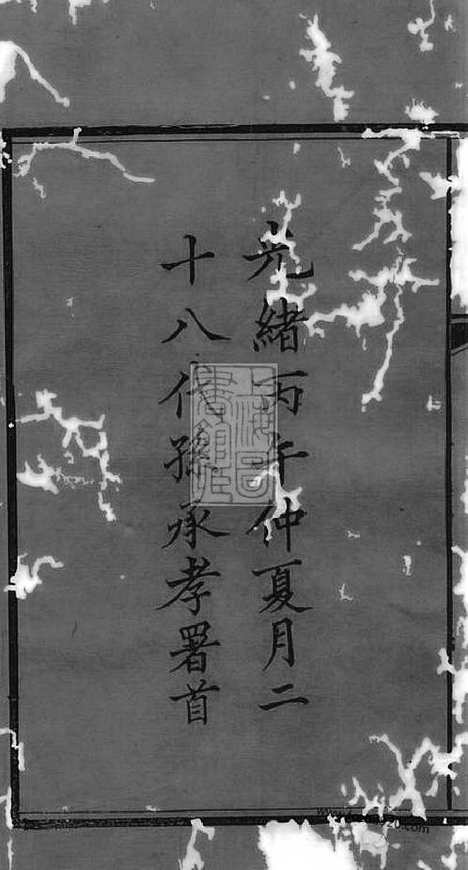 光緒丙午仲夏月二
十八代孫承孝署首